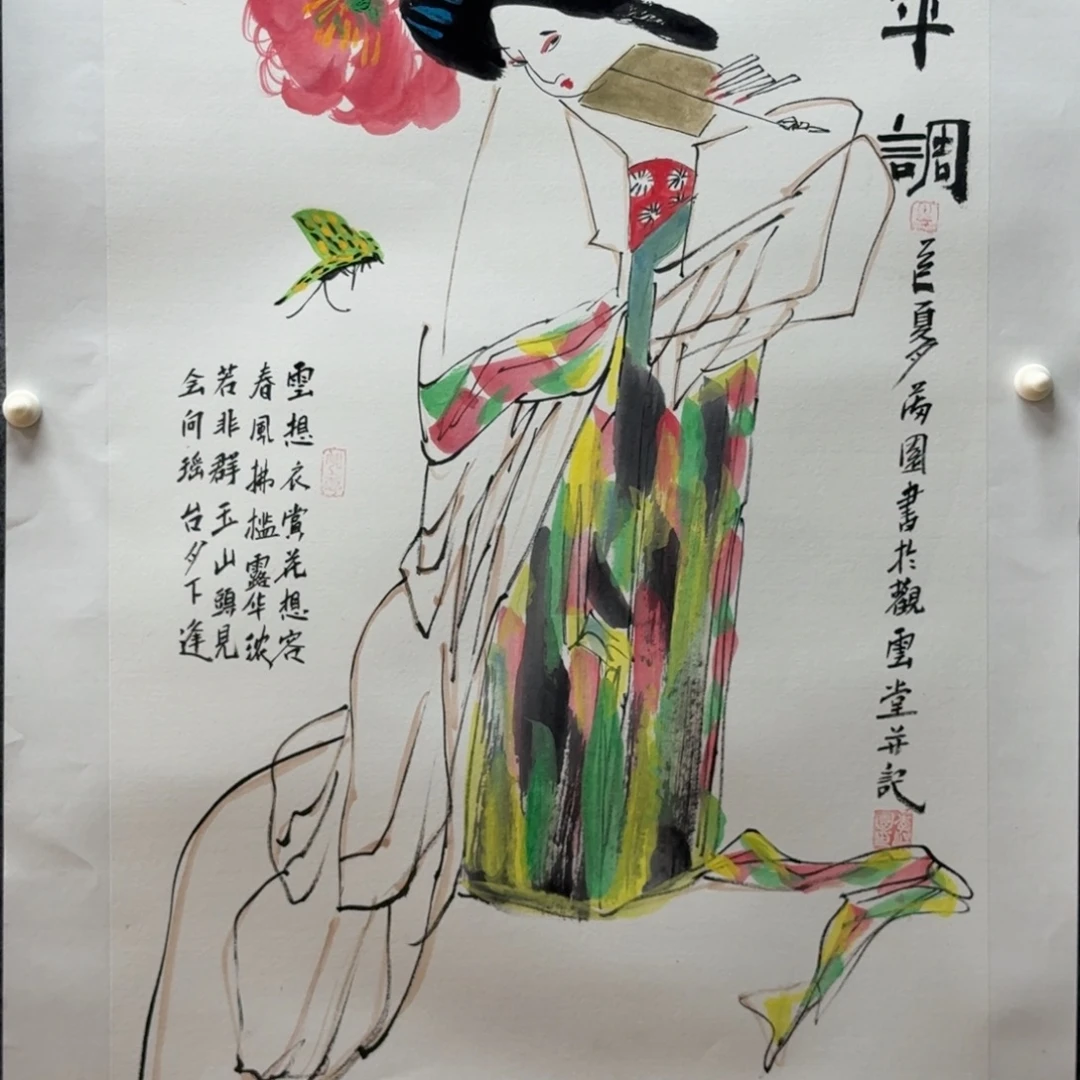 平調
夏月園書於觀雲堂并記
雲想衣賞花想容
春風拂檻露华浓
若非群玉山頭見
会向瑶台月下逢